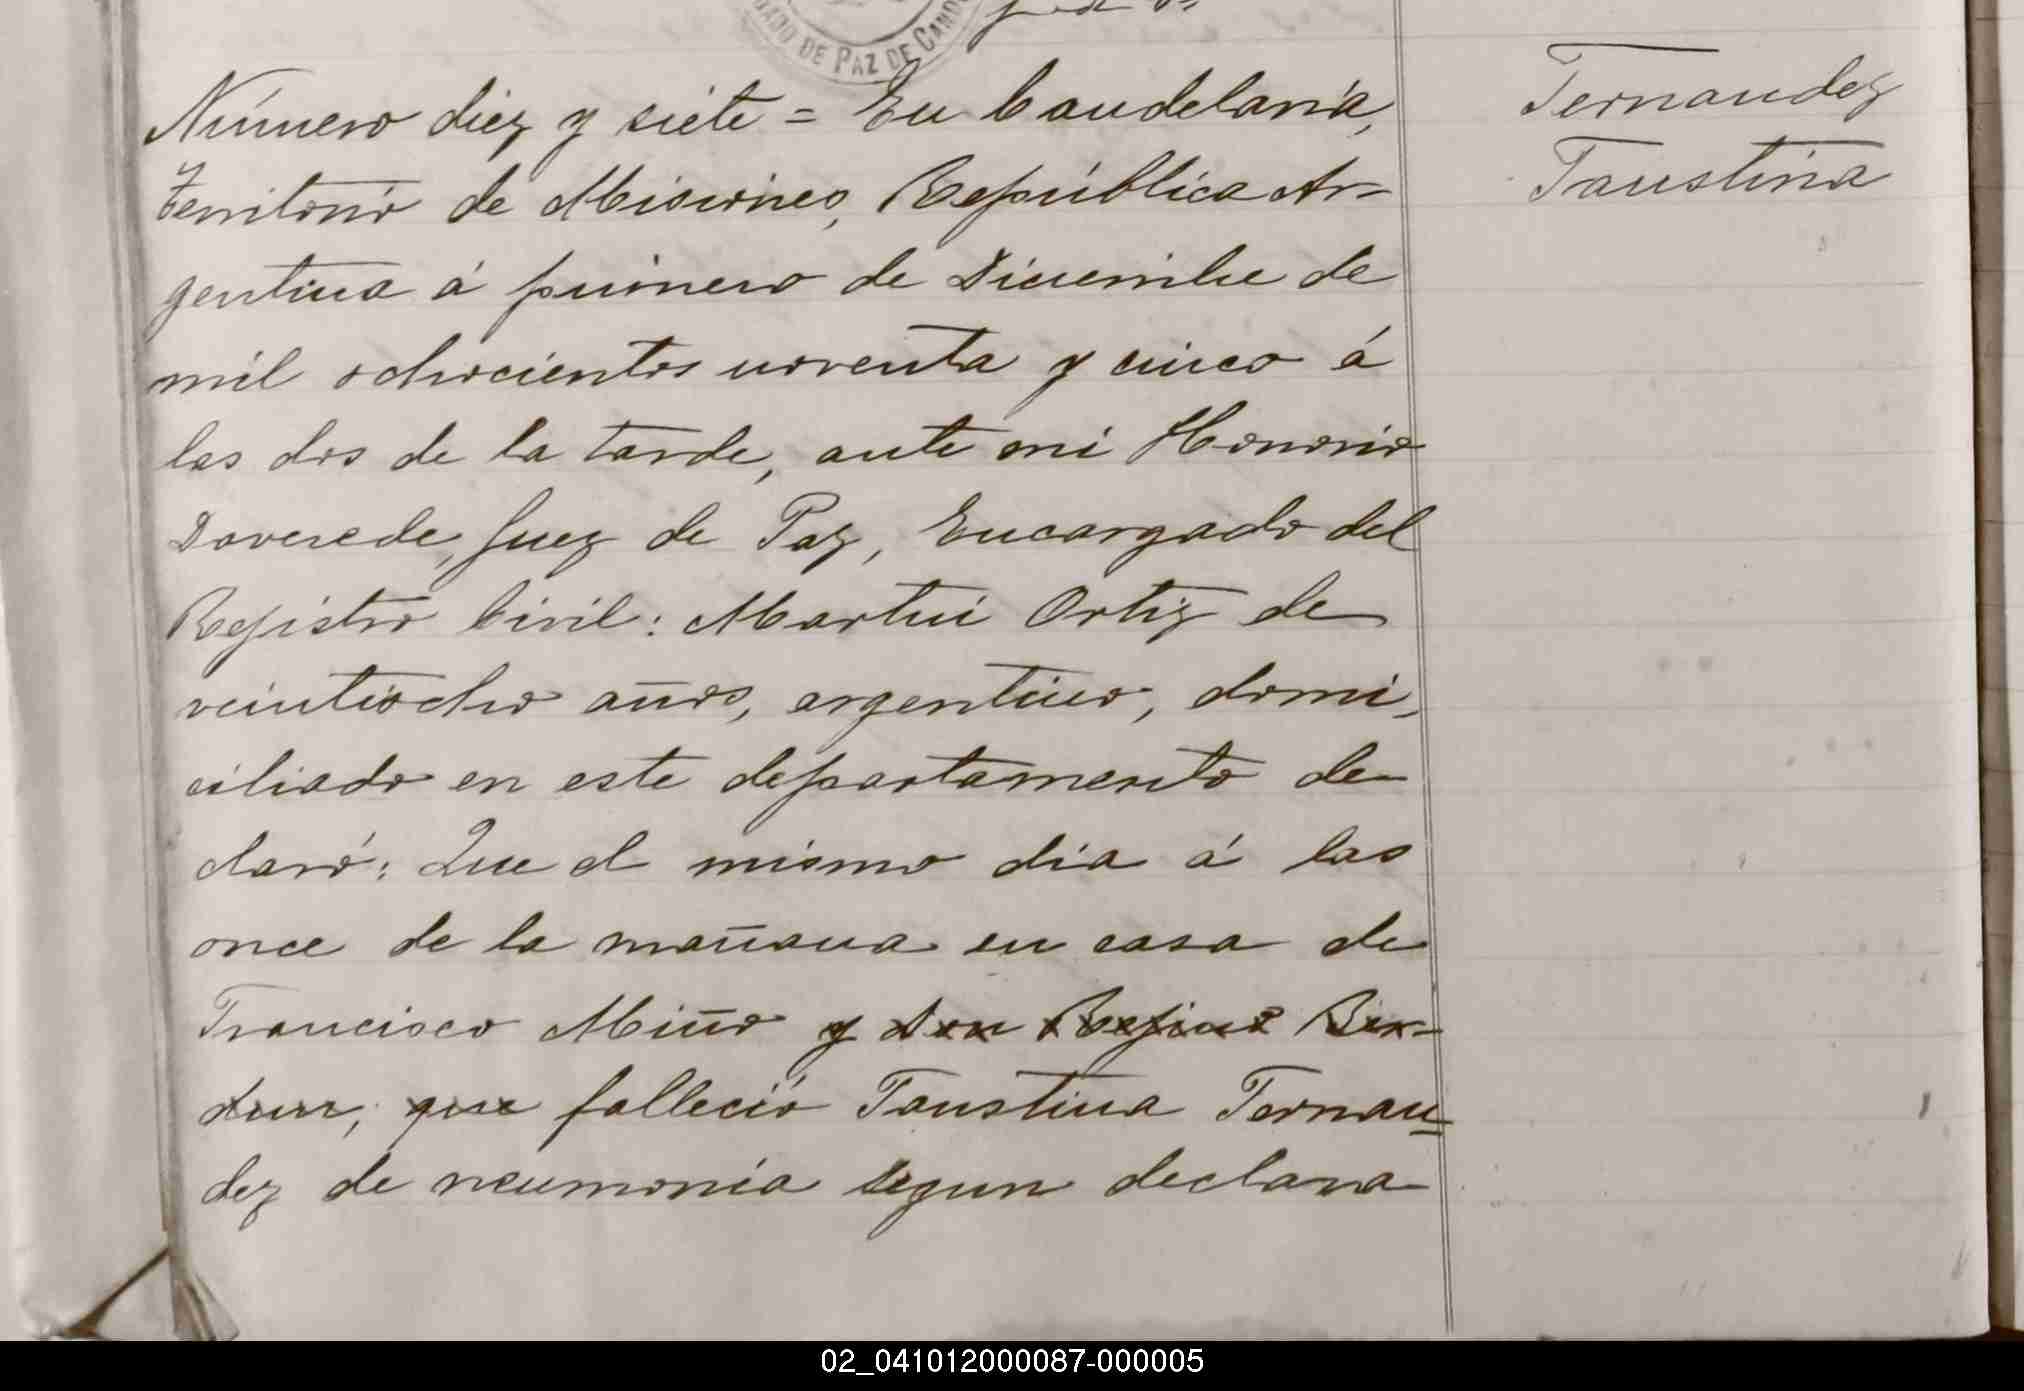 DE PAZ DE
Número diez y siete = En Candelaria,
Territorio de Misiones, República Ar-
gentina á primero de Diciembre de
mil ochocientos noventa y cinco á
las dos de la tarde, ante mi Honorio
Doverede, Juez de Paz, Encargado del
Registro Civil: Martin Ortiz de
veintiocho años, argentino, domi-
ciliado en este departamento de-
claró: Que el mismo dia á las
once de la mañana en casa de
Francisco Miño y Don Regino
que falleció Faustina Fernan-
dez de neumonía segun declara
Fernandez
Faustina
02_041012000087-000005